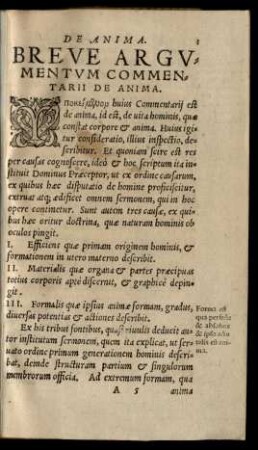 DE ANIMA.
BREVE ARGV-
MENTVM COMMEN-
TARII DE ANIMA.
huius Commentarij est
de anima, id est, de uita hominis, quæ
constat corpore & anima. Huius igi
tur consideratio, illius inspectio, de-
scribitur. Et quoniam scire est res
per causas cognoscere, ideò & hoc scriptum ita in
stituit Dominus Præceptor, ut ex ordine causarum,
ex quibus hæc disputatio de homine proficiscitur,
extruat atq; ædificet omnem sermonem, qui in hoc
opere continetur. Sunt autem tres causæ, ex qui-
bus hæc oritur doctrina, quæ naturam hominis ob
oculos pingit.
I. Efficiens quæ primam originem hominis, &
formationem in utero materno describit.
II. Materialis quæ organa & partes præcipuas
totius corporis aptè discernit, & graphicè depin-
git.
III. Formalis quæ ipsius animæ formam, gradus,
diuersas potentias & actiones describit.
Forma est
quæ
de
Ex his tribus fontibus, quasi riuulis deducit au-
tor institutum sermonem, quem ita explicat, ut ser-
uato ordine primam generationem hominis descri-
bat, deinde structuram partium & singulorum
membrorum officia. Ad extremum formam, quæ
A 5 anima